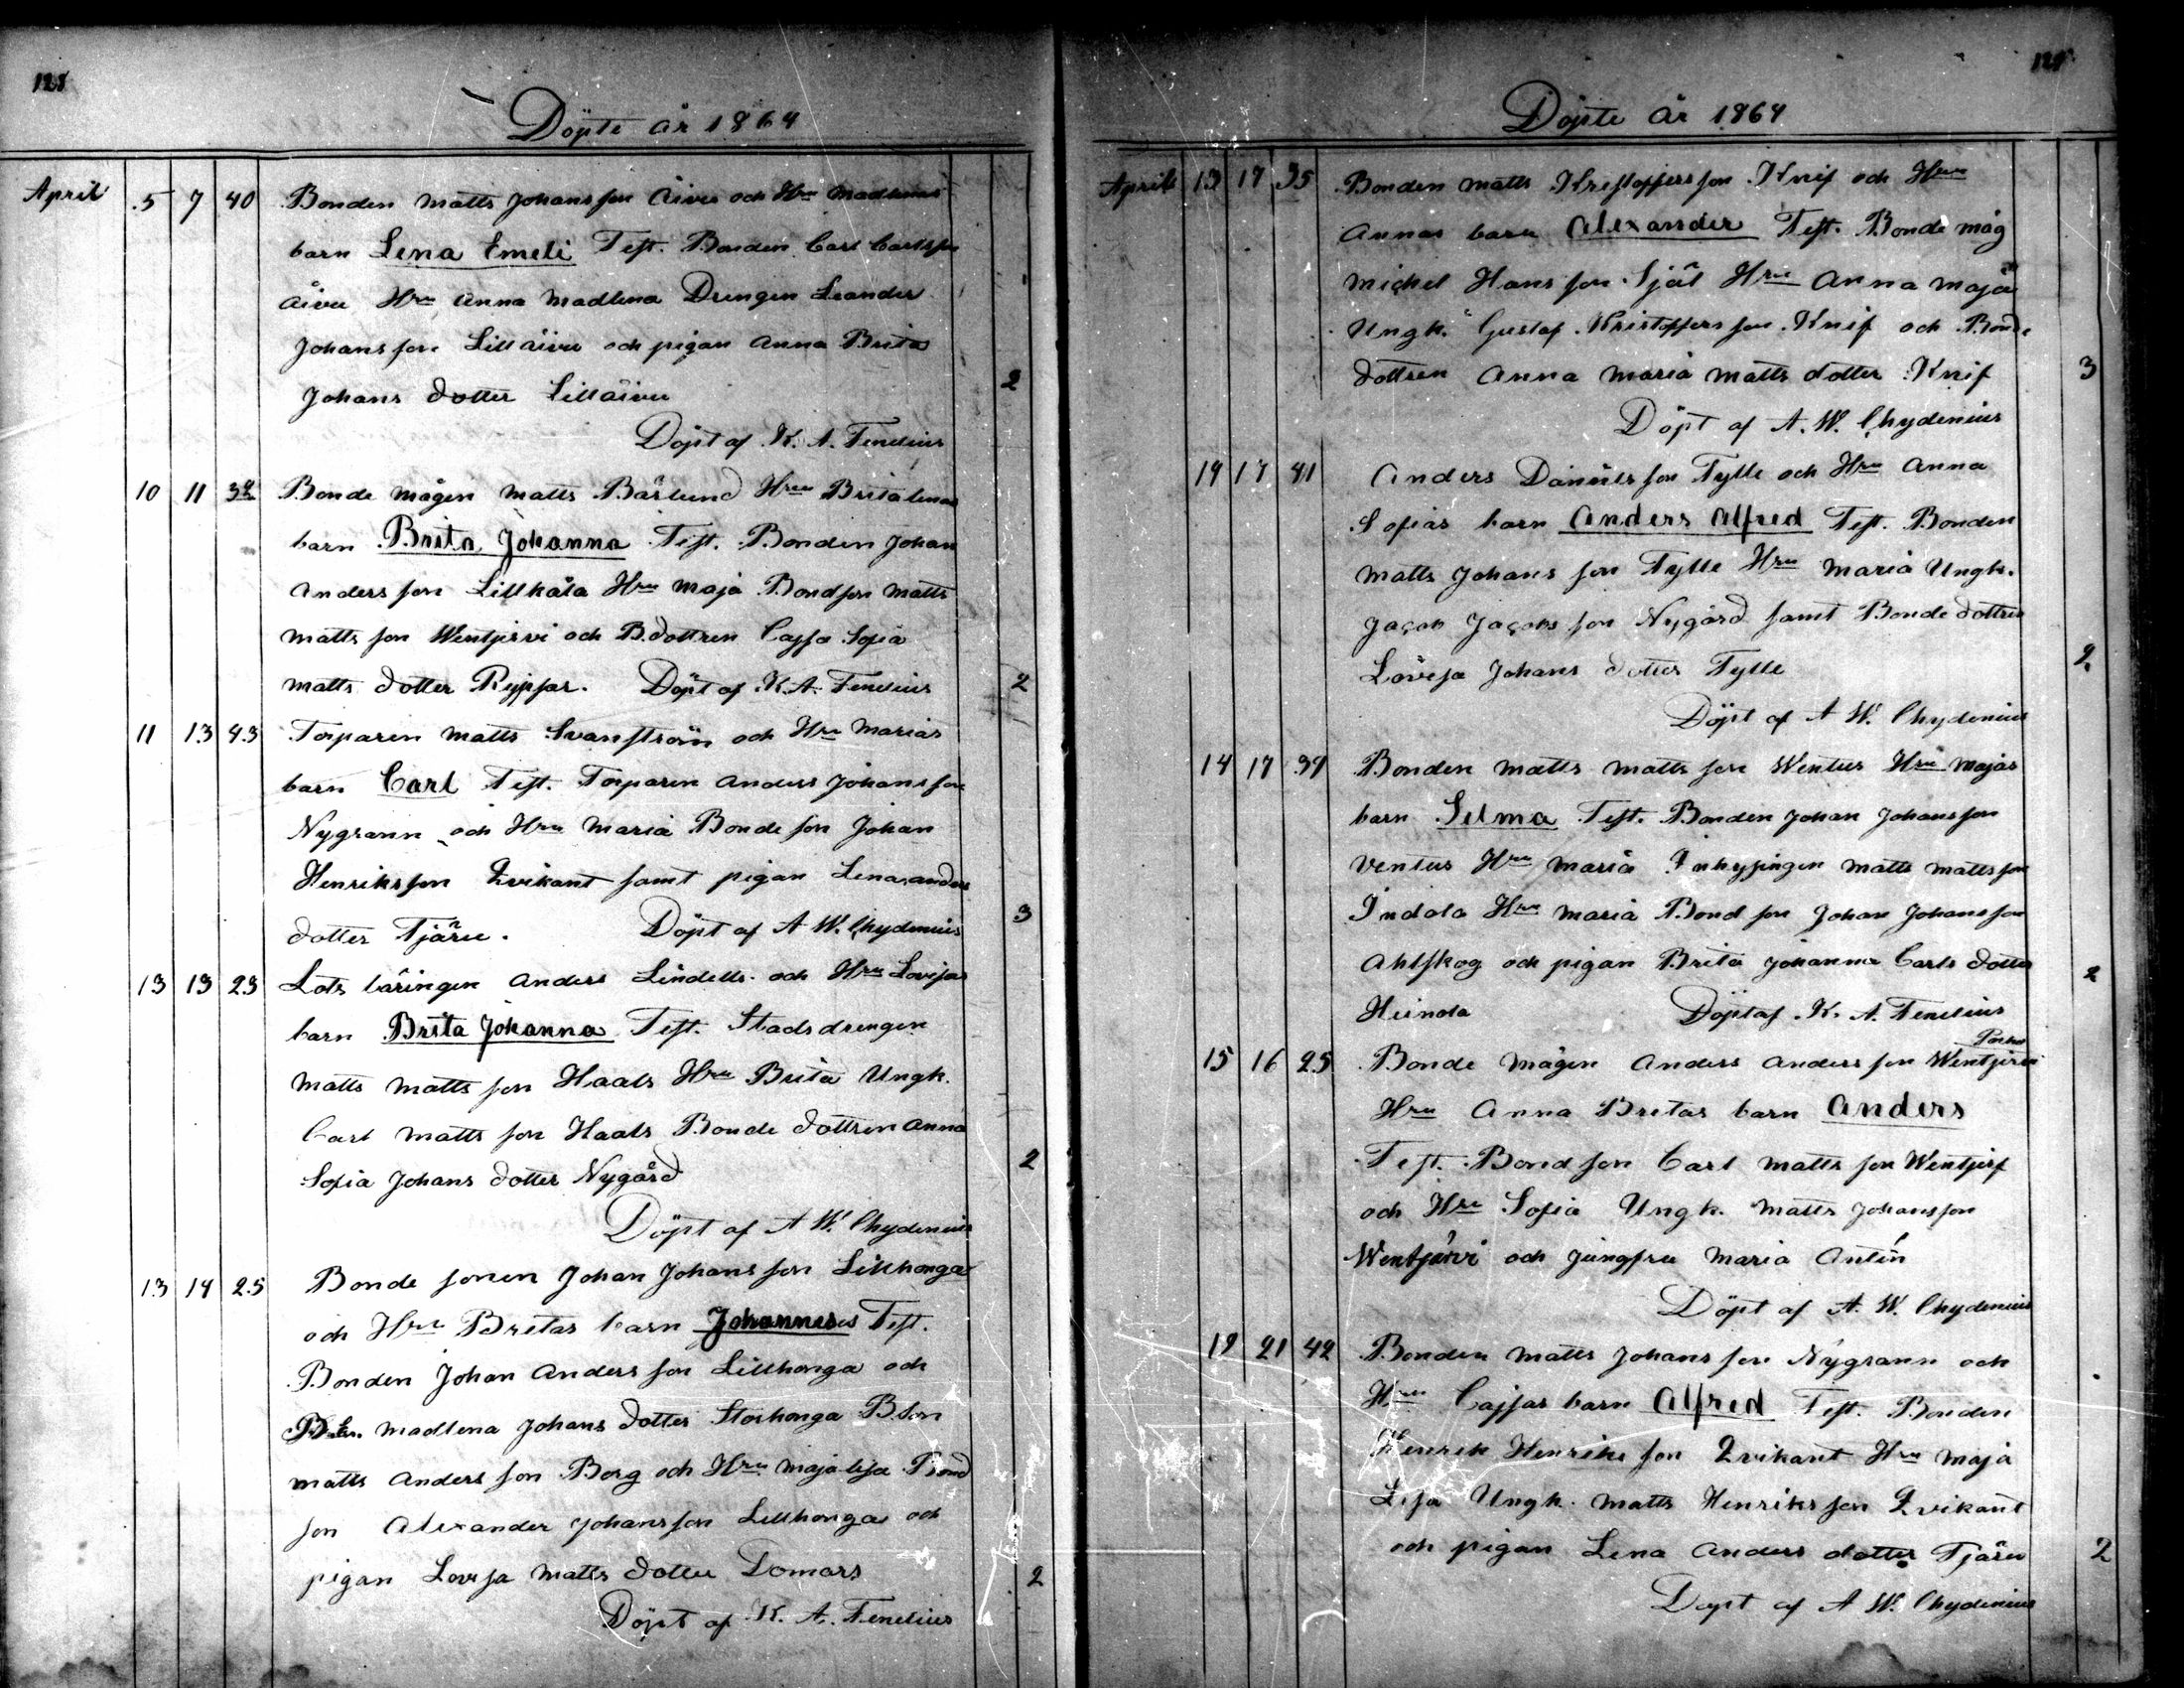 128
Döpte år 1864
April 5 7 40 Bonden Matts Johansson Äivu och Hru Madlenas
barn Lena Emeli Test. Bonden Carl Carlsson
Äivu Hru Anna Madlena Drengen Leander
Johansson Lilläivu och pigan Anna Brita
Johans dotter Lilläivu 2
Döpt af K. A. Fenelius
10 11 32 Bonde mågen Matts Bäslund Hru Brita Lenas
barn Brita Johanna Test. Bonden Johan
Andersson Lillkåla Hru Maja Bondson Matts
Mattsson Wentjervi och B.dottren Cajsa Sofia
Matts dotter Rypsar. Döpt af K. A. Fenelius 2
11 13 43 Torparen Matts Svanström och Hru Marias
barn Carl Test. Torparen Anders Johansson
Nygrann och Hru Maria Bonde son Johan
Henriksson Qvikant samt pigan Lena Anders
dotter Tjäru. Döpt af A W. Chydenius 3
13 13 23 Lots läringen Anders Lindells och Hru Lovisas
barn Brita Johanna Test. Stadsdrengen
Matts Matts son Haals Hru Brita Ungk.
Carl Matts son Haals Bonde dottren Anna
Sofia Johans dotter Nygård 2
Döpt af A W. Chydenius
13 14 25 Bonde sonen Johan Johans son Lillhonga
och Hru Bretas barn Johannes Test.
Bonden Johan Anders son Lillhonga och
Madlena Johans dotter Storhonga B.son
Matts Anders son Borg och Hru Maja Lisa Bond
son Alexander Johansson Lillhonga och
pigan Lovisa Matts dotter Domars 2
Döpt af K. A. Fenelius
129
Döpte år 1864
April 13 17 35 Bonden Matts Kristoffersson Knif och Hru
Annas barn Alexander Test. Bonde måg
Michel Hans son Själ Hru Anna Maja
Ungk. Gustaf Kristoffersson Knif och Bonde
dottren Anna Maria Matts dotter Knif 3
Döpt af A. W. Chydenius
14 17 41 Anders Daniels son Tylle och Hru Anna
Sofias barn Anders Alfred Test. Bonden
Matts Johans son Tylle Hru Maria Ungk.
Jacob Jacobs son Nygård samt Bonde dottren
Lovisa Johans dotter Tylle 2
Döpt af A W. Chydenius
14 17 34 Bonden Matts Matts son Wentus Hru Majas
barn Selma Test. Bonden Johan Johansson
Ventus Hru Maria Inhysingen Matts Mattsson
Indola Hru Maria Bond son Johan Johansson
Ahlskog och pigan Brita Johanna Carls dotter 2
Heinola Döpt af K. A. Fenelius
15 16 25 Bonde mågen Anders Anders son Wentjervi
Hru Anna Bretas barn Anders
Test. Bond son Carl Matts son Wentjerf
och Hru Sofia Ungk. Matts Johansson
Wentjärvi och jungfru Maria Antin
Döpt af A. W. Chydenius
19 21 42 Bonden Matts Johans son Nygrann och
Hru Cajsas barn Alfred Test. Bonden
Henrik Henriks son Qvikant Hru Maja
Lisa Ungk. Matts Henriks son Qvikant
och pigan Lena Anders dotter Tjäru 2
Döpt af A W. Chydenius